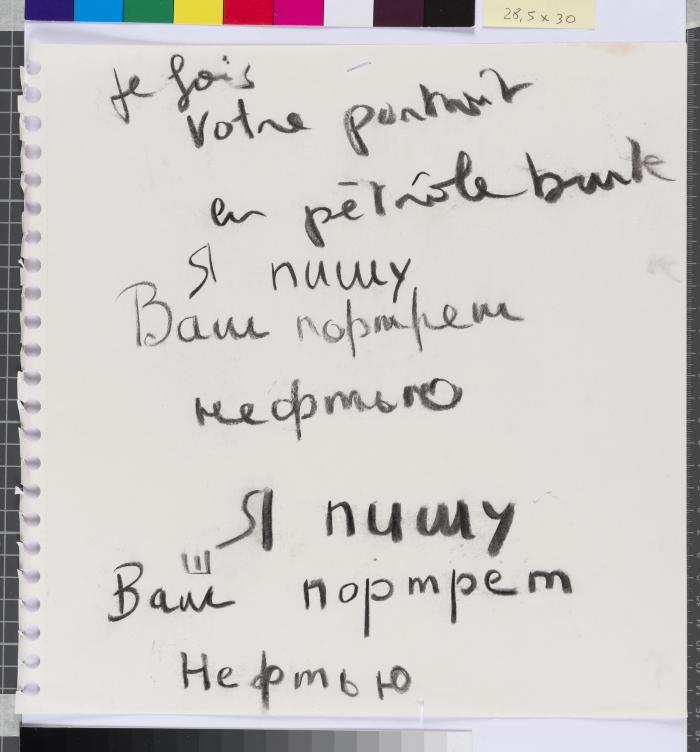 28,5 x 30
je fais
votre portrait
en pétrole brute
Я пишу
Ваш портрет
нефтью
Я пишу
Ш
Ваш портрет
Нефтью